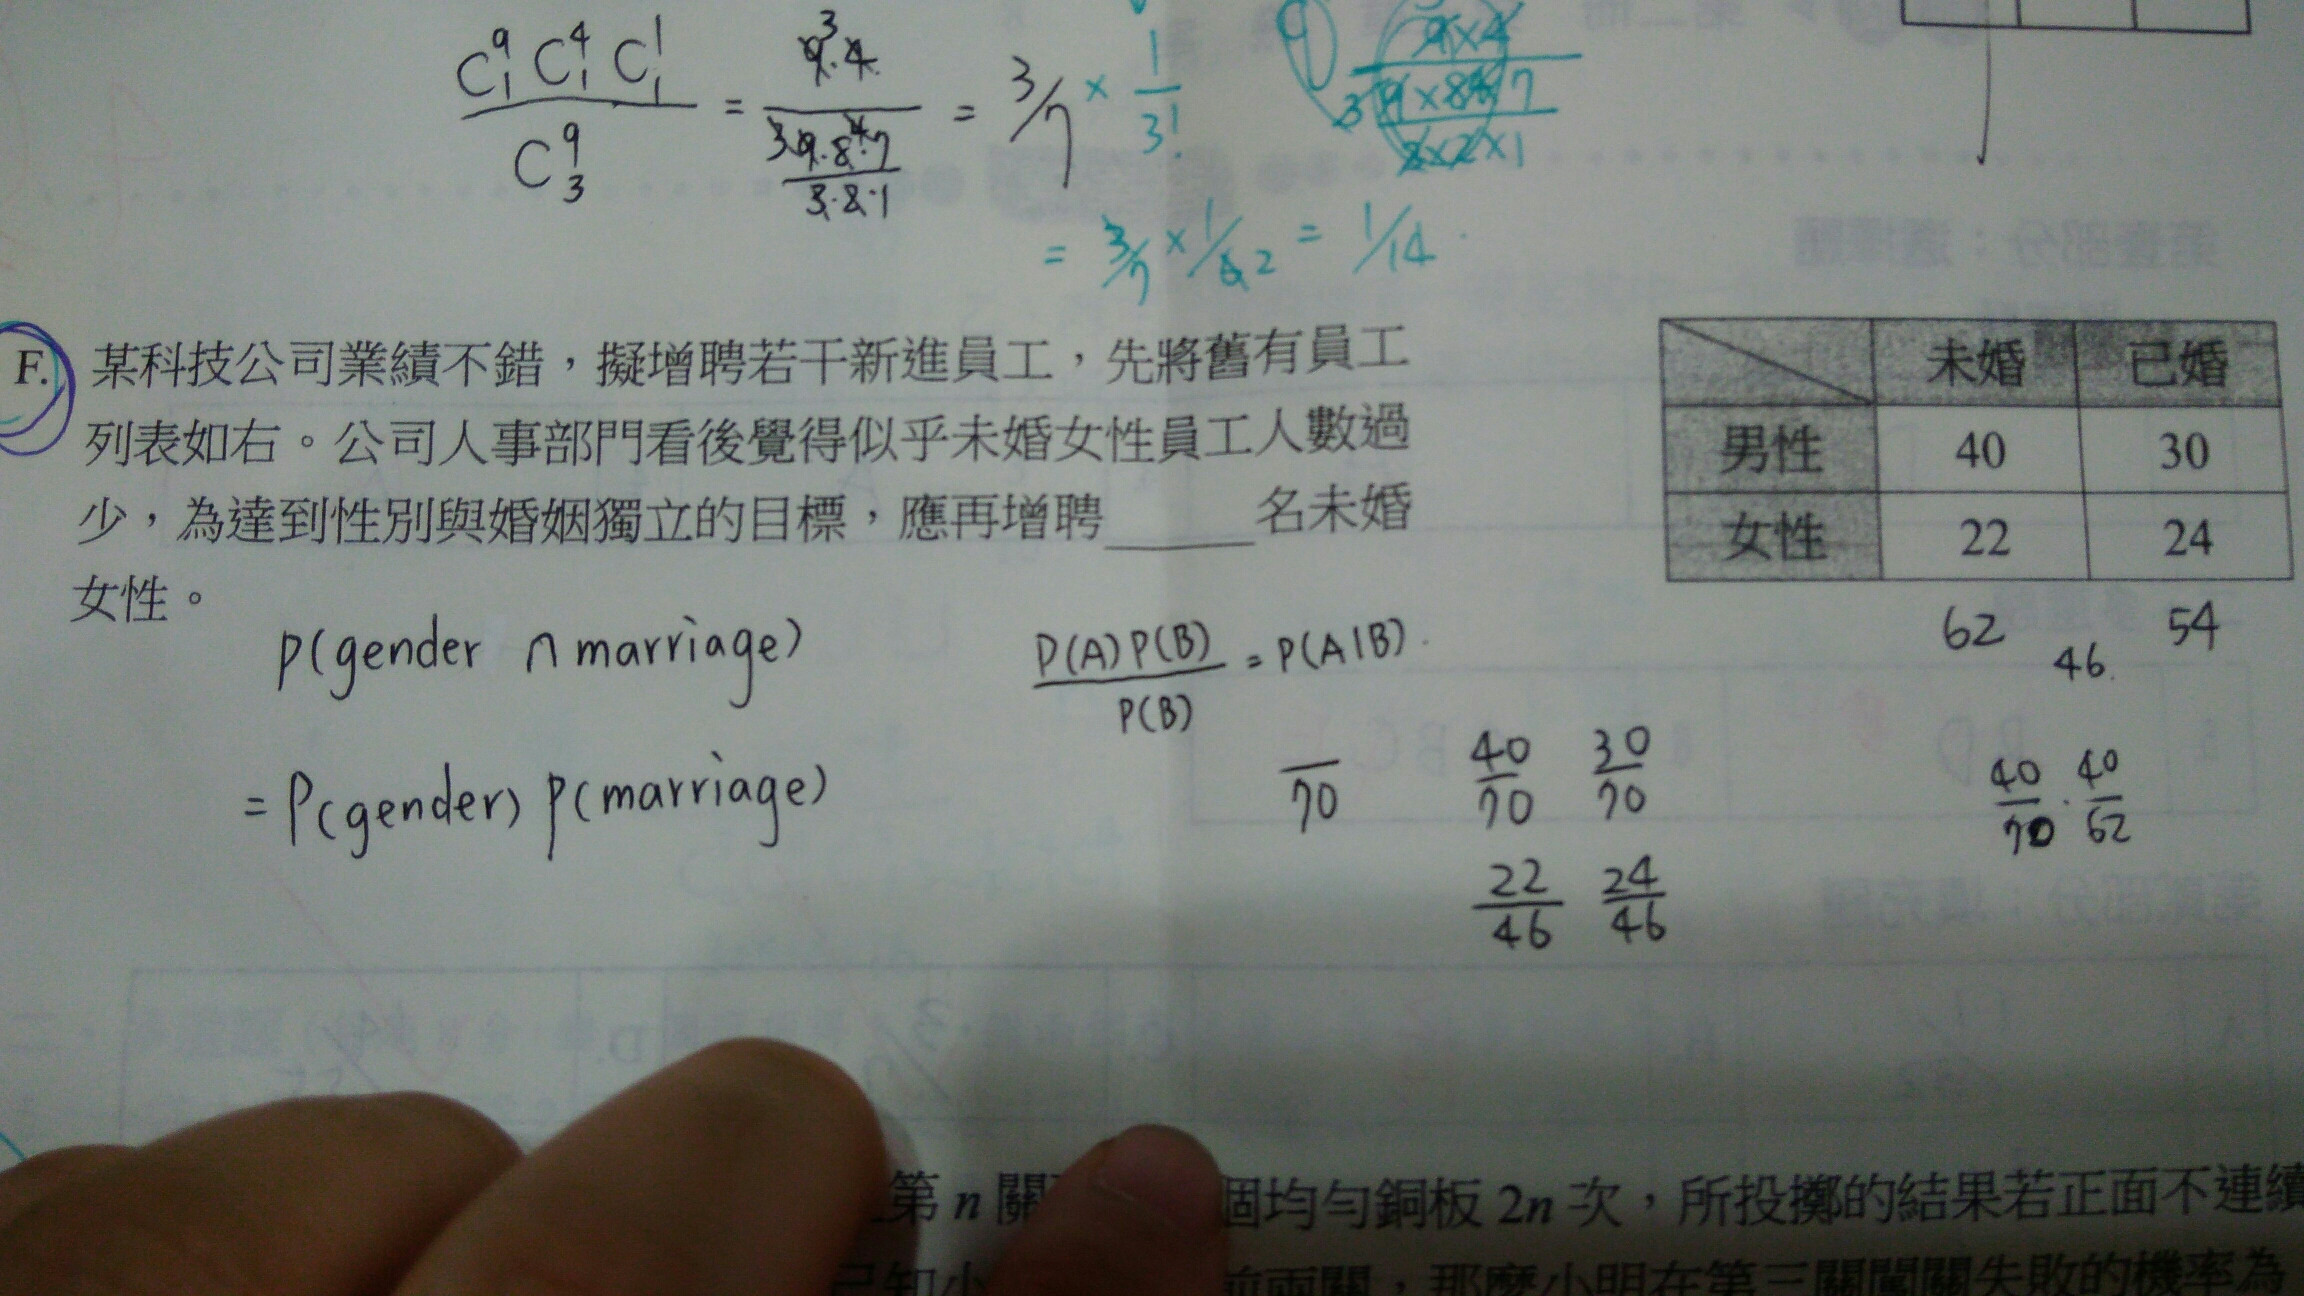 C⁹₁ C⁴₁ C¹₁ / C⁹₃ = 9·4 / (9·8·7 / 3·2·1) = 3/7 × 1/3!
= 3/7 × 1/6 2 = 1/14
9×4 / (9×8×7 / 3×2×1)
F. 某科技公司業績不錯，擬增聘若干新進員工，先將舊有員工
列表如右。公司人事部門看後覺得似乎未婚女性員工人數過
少，為達到性別與婚姻獨立的目標，應再增聘______名未婚
女性。
未婚 已婚
男性 40 30
女性 22 24
62 54
46.
p(gender ∩ marriage)
= P(gender) P(marriage)
P(A)P(B) / P(B) = P(A|B).
/70 40/70 30/70
22/46 24/46
40/70 · 40/62
第 n 關
個均勻銅板 2n 次，所投擲的結果若正面不連續
已知小
前兩關，那麼小明在第三關闖關失敗的機率為